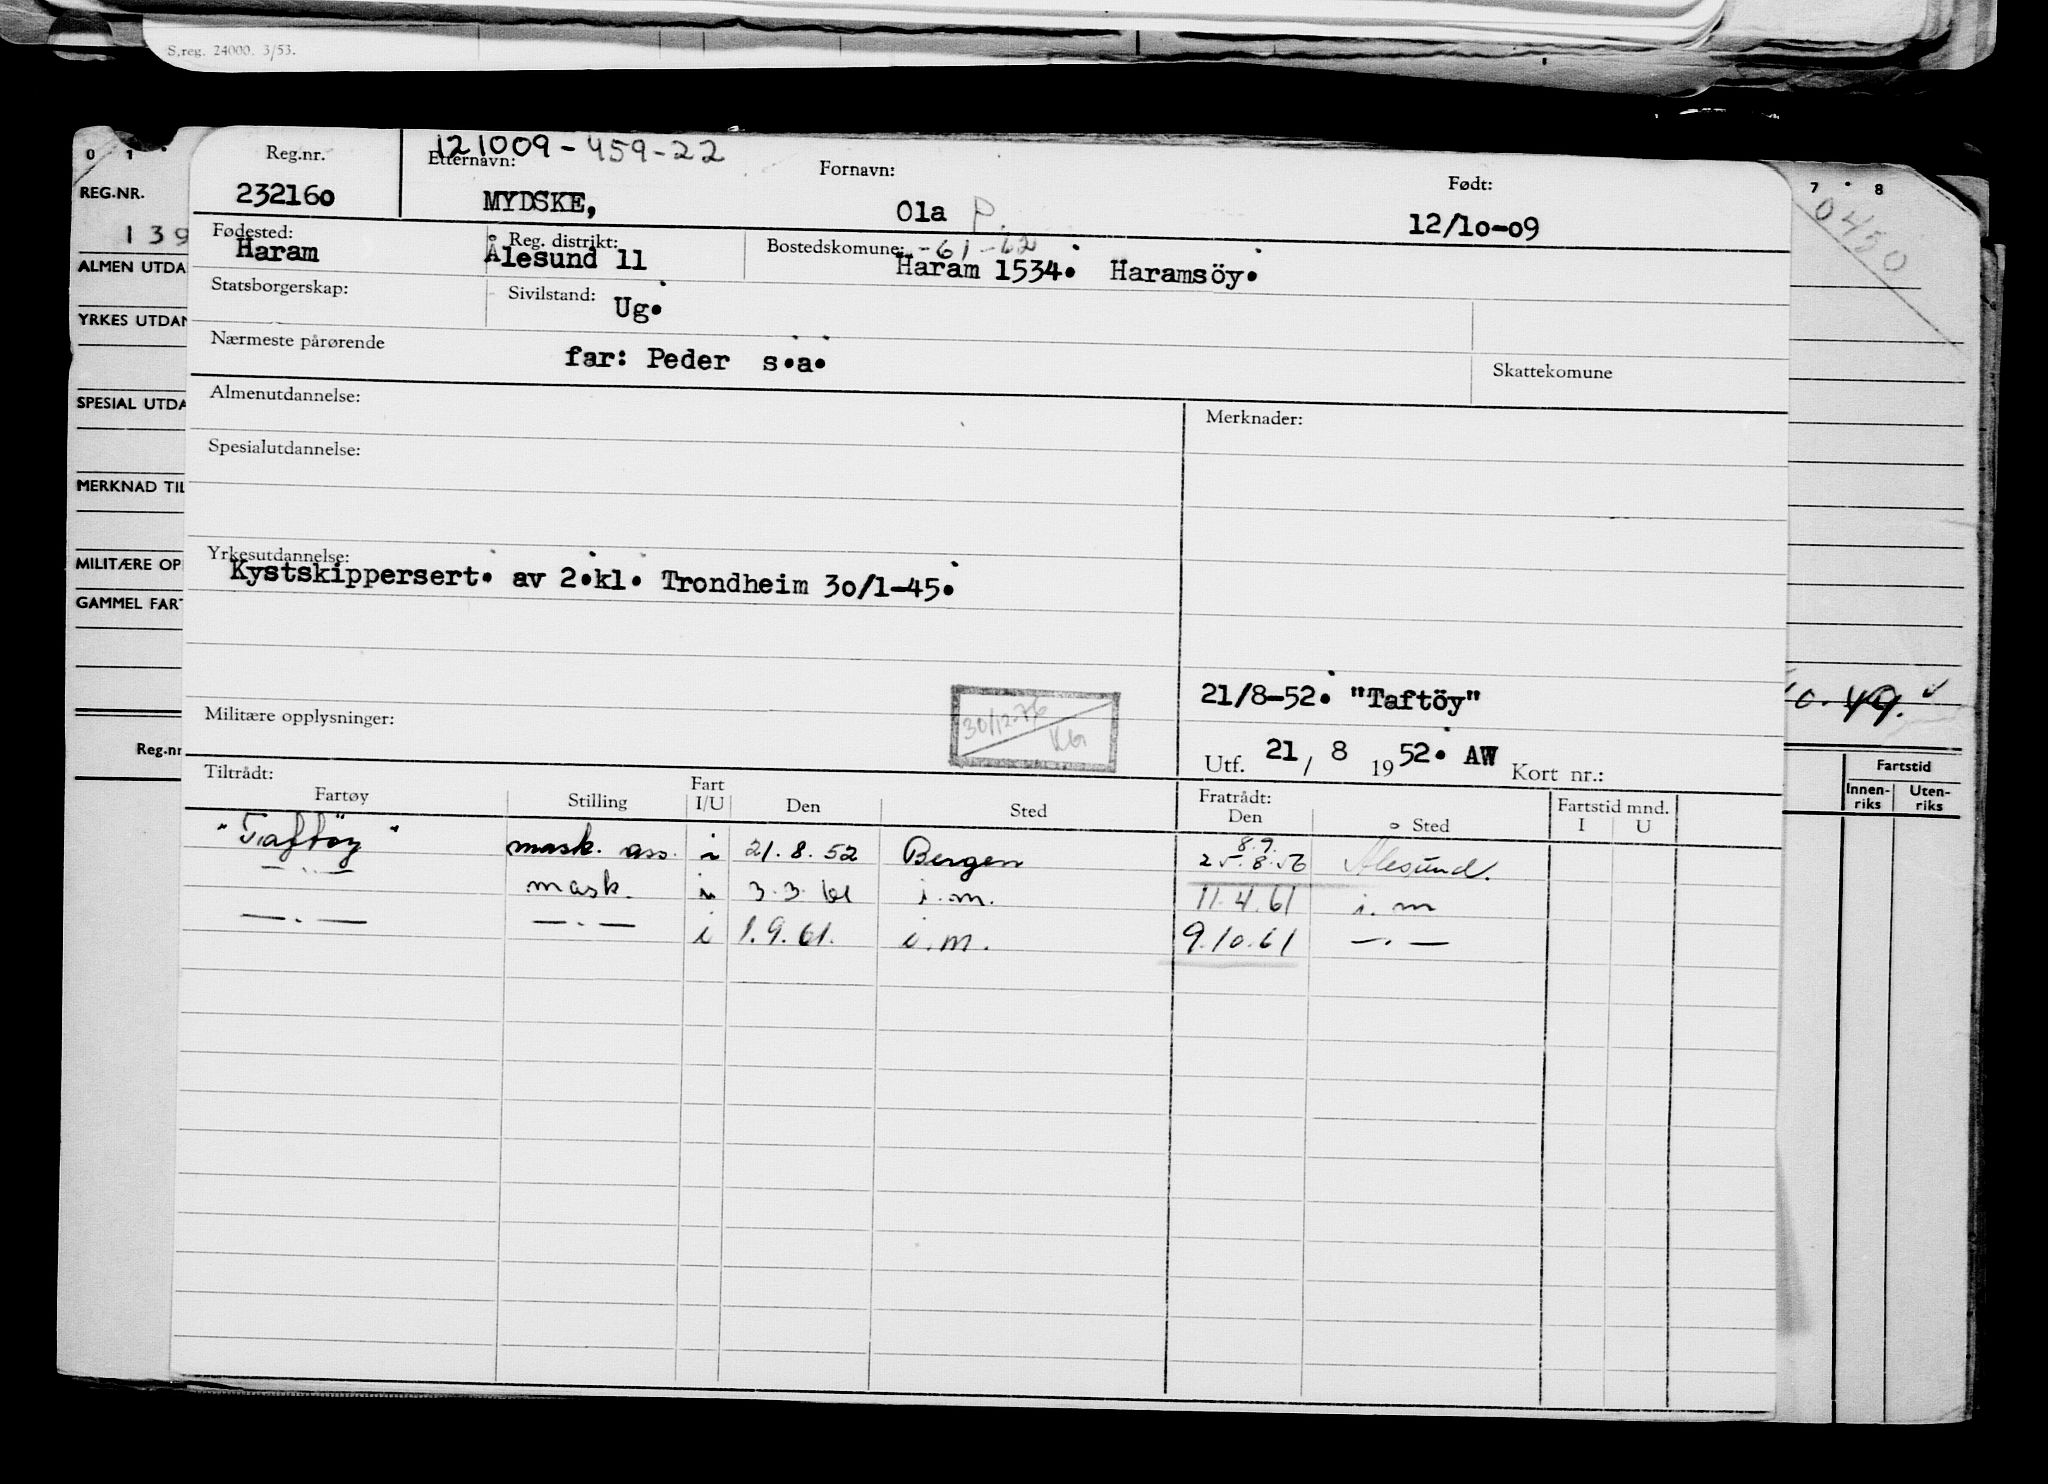 S.reg. 24000. 3/53.
0 1
7 8
121009-459-22
Reg.nr. Etternavn: Fornavn: Født:
REG.NR.
232160 MYDSKE, Ola P. 12/10-09
0450
139
Fødested: Reg. distrikt: Bostedskomune: -61-62
Haram Ålesund 11 Haram 1534. Haramsöy.
ALMEN UTDA
Statsborgerskap: Sivilstand: Ug.
YRKES UTDAN
Nærmeste pårørende far: Peder s.a. Skattekomune
SPESIAL UTDA
Almenutdannelse: Merknader:
Spesialutdannelse:
MERKNAD TIL
MILITÆRE OP
Yrkesutdannelse:
Kystskippersert. av 2.kl. Trondheim 30/1-45.
GAMMEL FAR
21/8-52. "Taftöy"
0.49.
Militære opplysninger: 30/12-76
Utf. 21 / 8 1952. AW Kort nr.:
Reg.nr
Fartstid
Innen-riks Uten-riks
Tiltrådt: Fratrådt:
Fartøy Stilling Fart I/U Den Sted Den Sted Fartstid mnd. I U
8.9.
"Taftöy" mask. ass. i 21.8.52 Bergen 25.8.56 Ålesund.
—.— mask. i 3.3.61 i.m. 11.4.61 i.m
—.— —.— i 1.9.61. i.m. 9.10.61 —.—